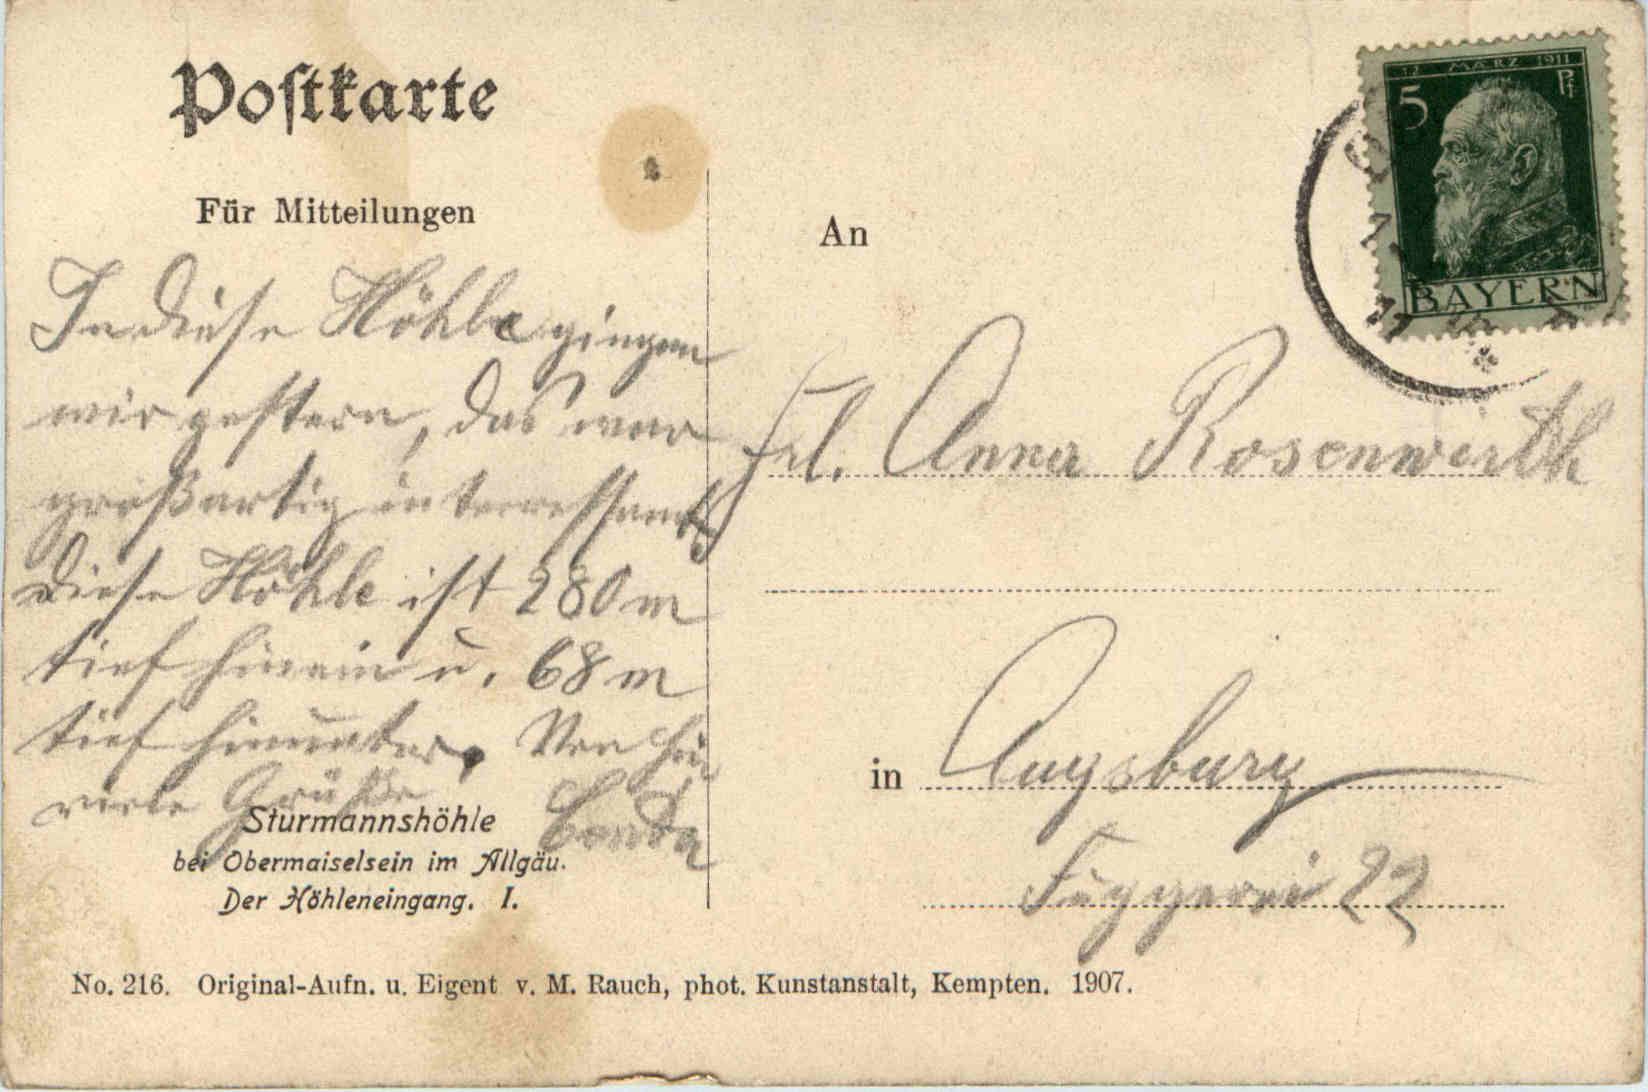 Postkarte
Für Mitteilungen
In diese Höhle gingen
wir gestern, das war
großartig interressant
Diese Höhle ist 280 m
tief hinein u. 68 m
tief hinunter. Von hier
viele Grüße
Sturmannshöhle
bei Obermaiselsein im Allgäu.
Der Höhleneingang. I.
No. 216. Original-Aufn. u. Eigent v. M. Rauch, phot. Kunstanstalt, Kempten. 1907.
12 MÄRZ 1911
5 Pf
BAYERN
An
Frl. Anna Rosenwerth
in Augsburg
Fuggerei 22